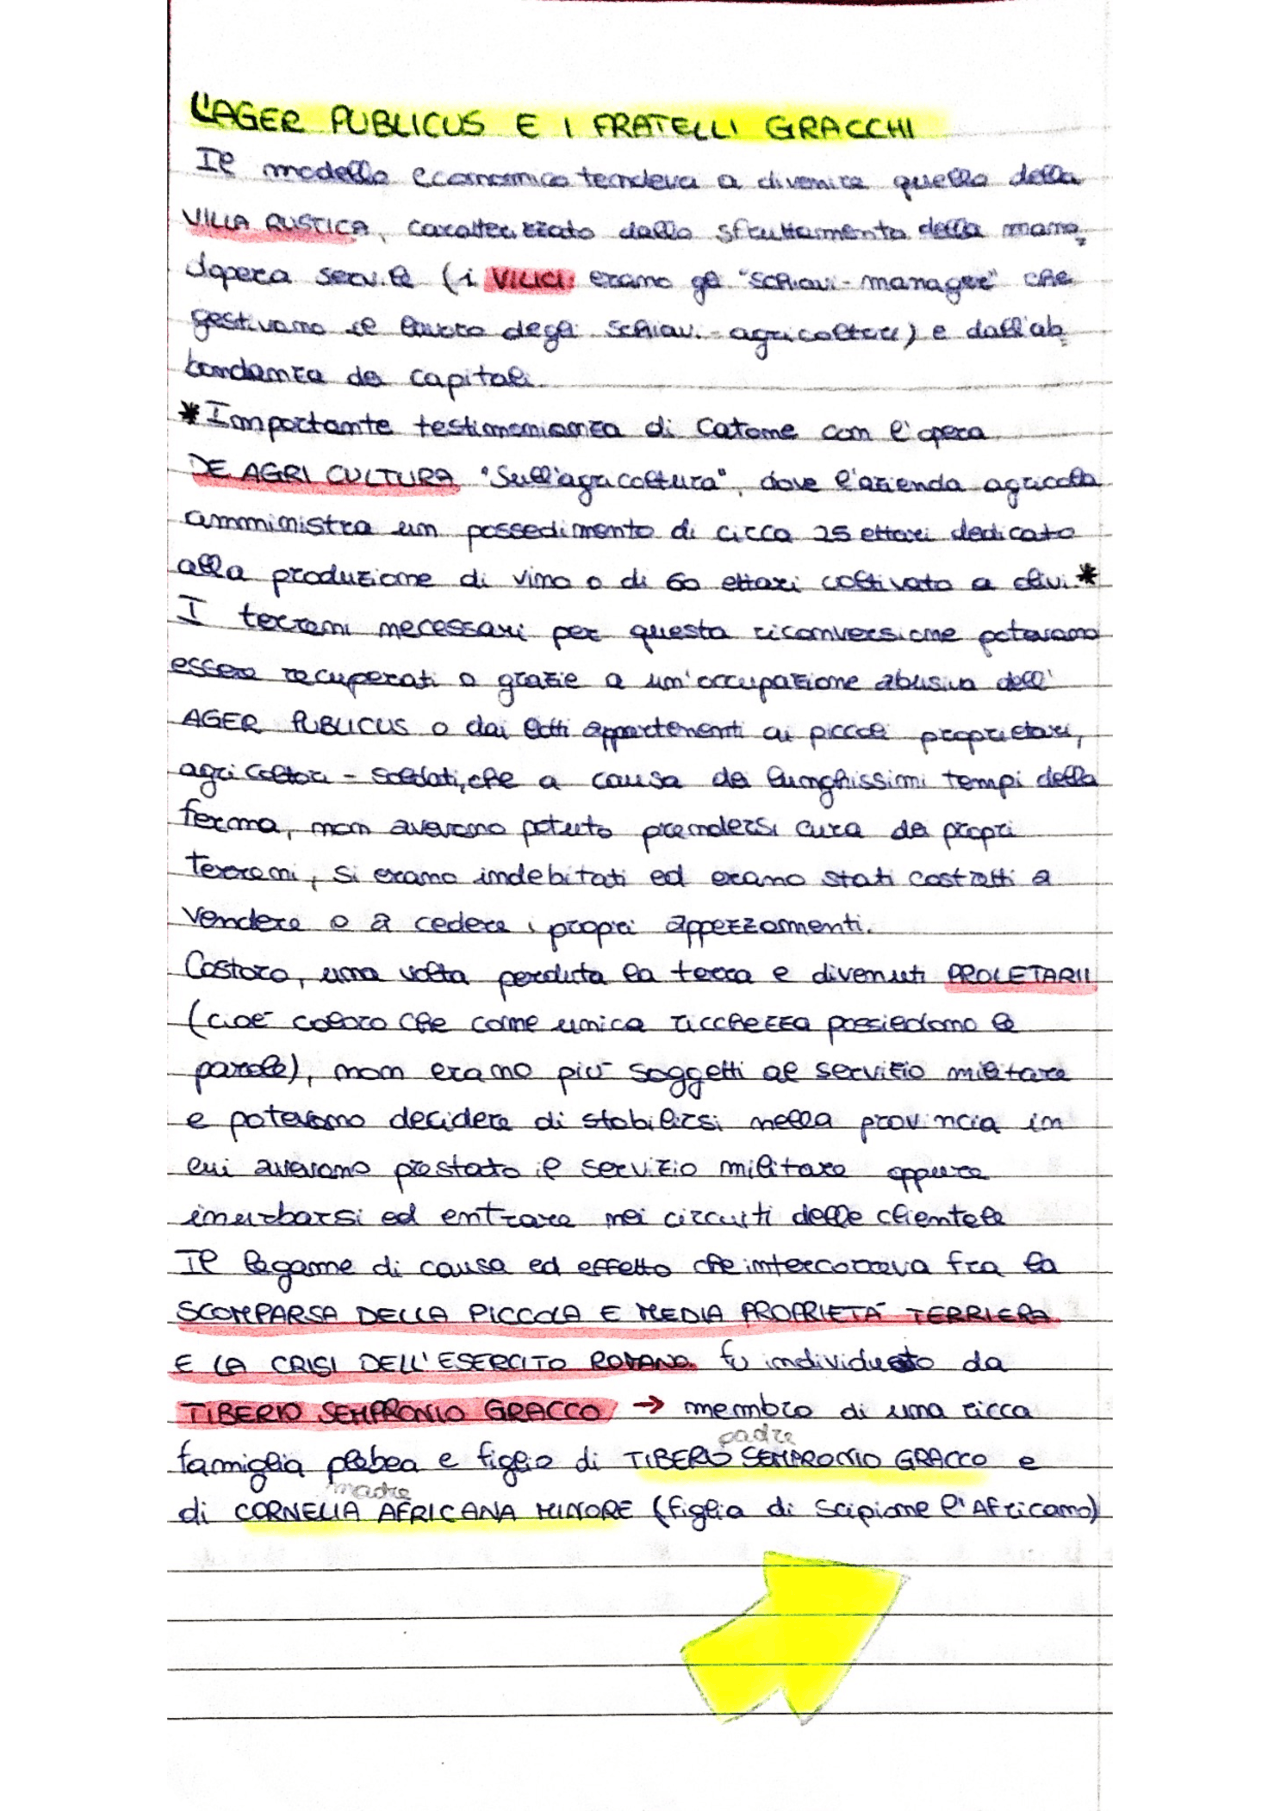 L'AGER PUBLICUS E I FRATELLI GRACCHI
Il modello economico tendeva a divenire quello della
VILLA RUSTICA, caratterizzato dallo sfruttamento della mano
d'opera servile (i VILICI erano gli "schiavi-manager" che
gestivano il lavoro degli schiavi-agricoltori) e dall'ab
bondanza dei capitali.
*Importante testimonianza di Catone con l'opera
DE AGRI CULTURA "Sull'agricoltura", dove l'azienda agricola
amministra un possedimento di circa 25 ettari dedicato
alla produzione di vino o di 60 ettari coltivato a olivi*
I terreni necessari per questa riconversione potevano
essere recuperati o grazie a un'occupazione abusiva dell'
AGER PUBLICUS o dai lotti appartenenti ai piccoli proprietari,
agricoltori - soldati, che a causa dei lunghissimi tempi della
ferma, non avevano potuto prendersi cura dei propri
terreni, si erano indebitati ed erano stati costretti a
vendere o a cedere i propri appezzamenti.
Costoro, una volta perduta la terra e divenuti PROLETARII
(cioè coloro che come unica ricchezza possiedono la
parole), non erano più soggetti al servizio militare
e potevano decidere di stabilirsi nella provincia in
cui avevano prestato il servizio militare oppure
inurbarsi ed entrare nei circuiti delle clientele
Il legame di causa ed effetto che intercorreva fra la
SCOMPARSA DELLA PICCOLA E MEDIA PROPRIETÀ TERRIERA
E LA CRISI DELL'ESERCITO ROMANO fu individuato da
TIBERIO SEMPRONIO GRACCO → membro di una ricca
padre
famiglia plebea e figlio di TIBERIO SEMPRONIO GRACCO e
madre
di CORNELIA AFRICANA MINORE (figlia di Scipione l'Africano)